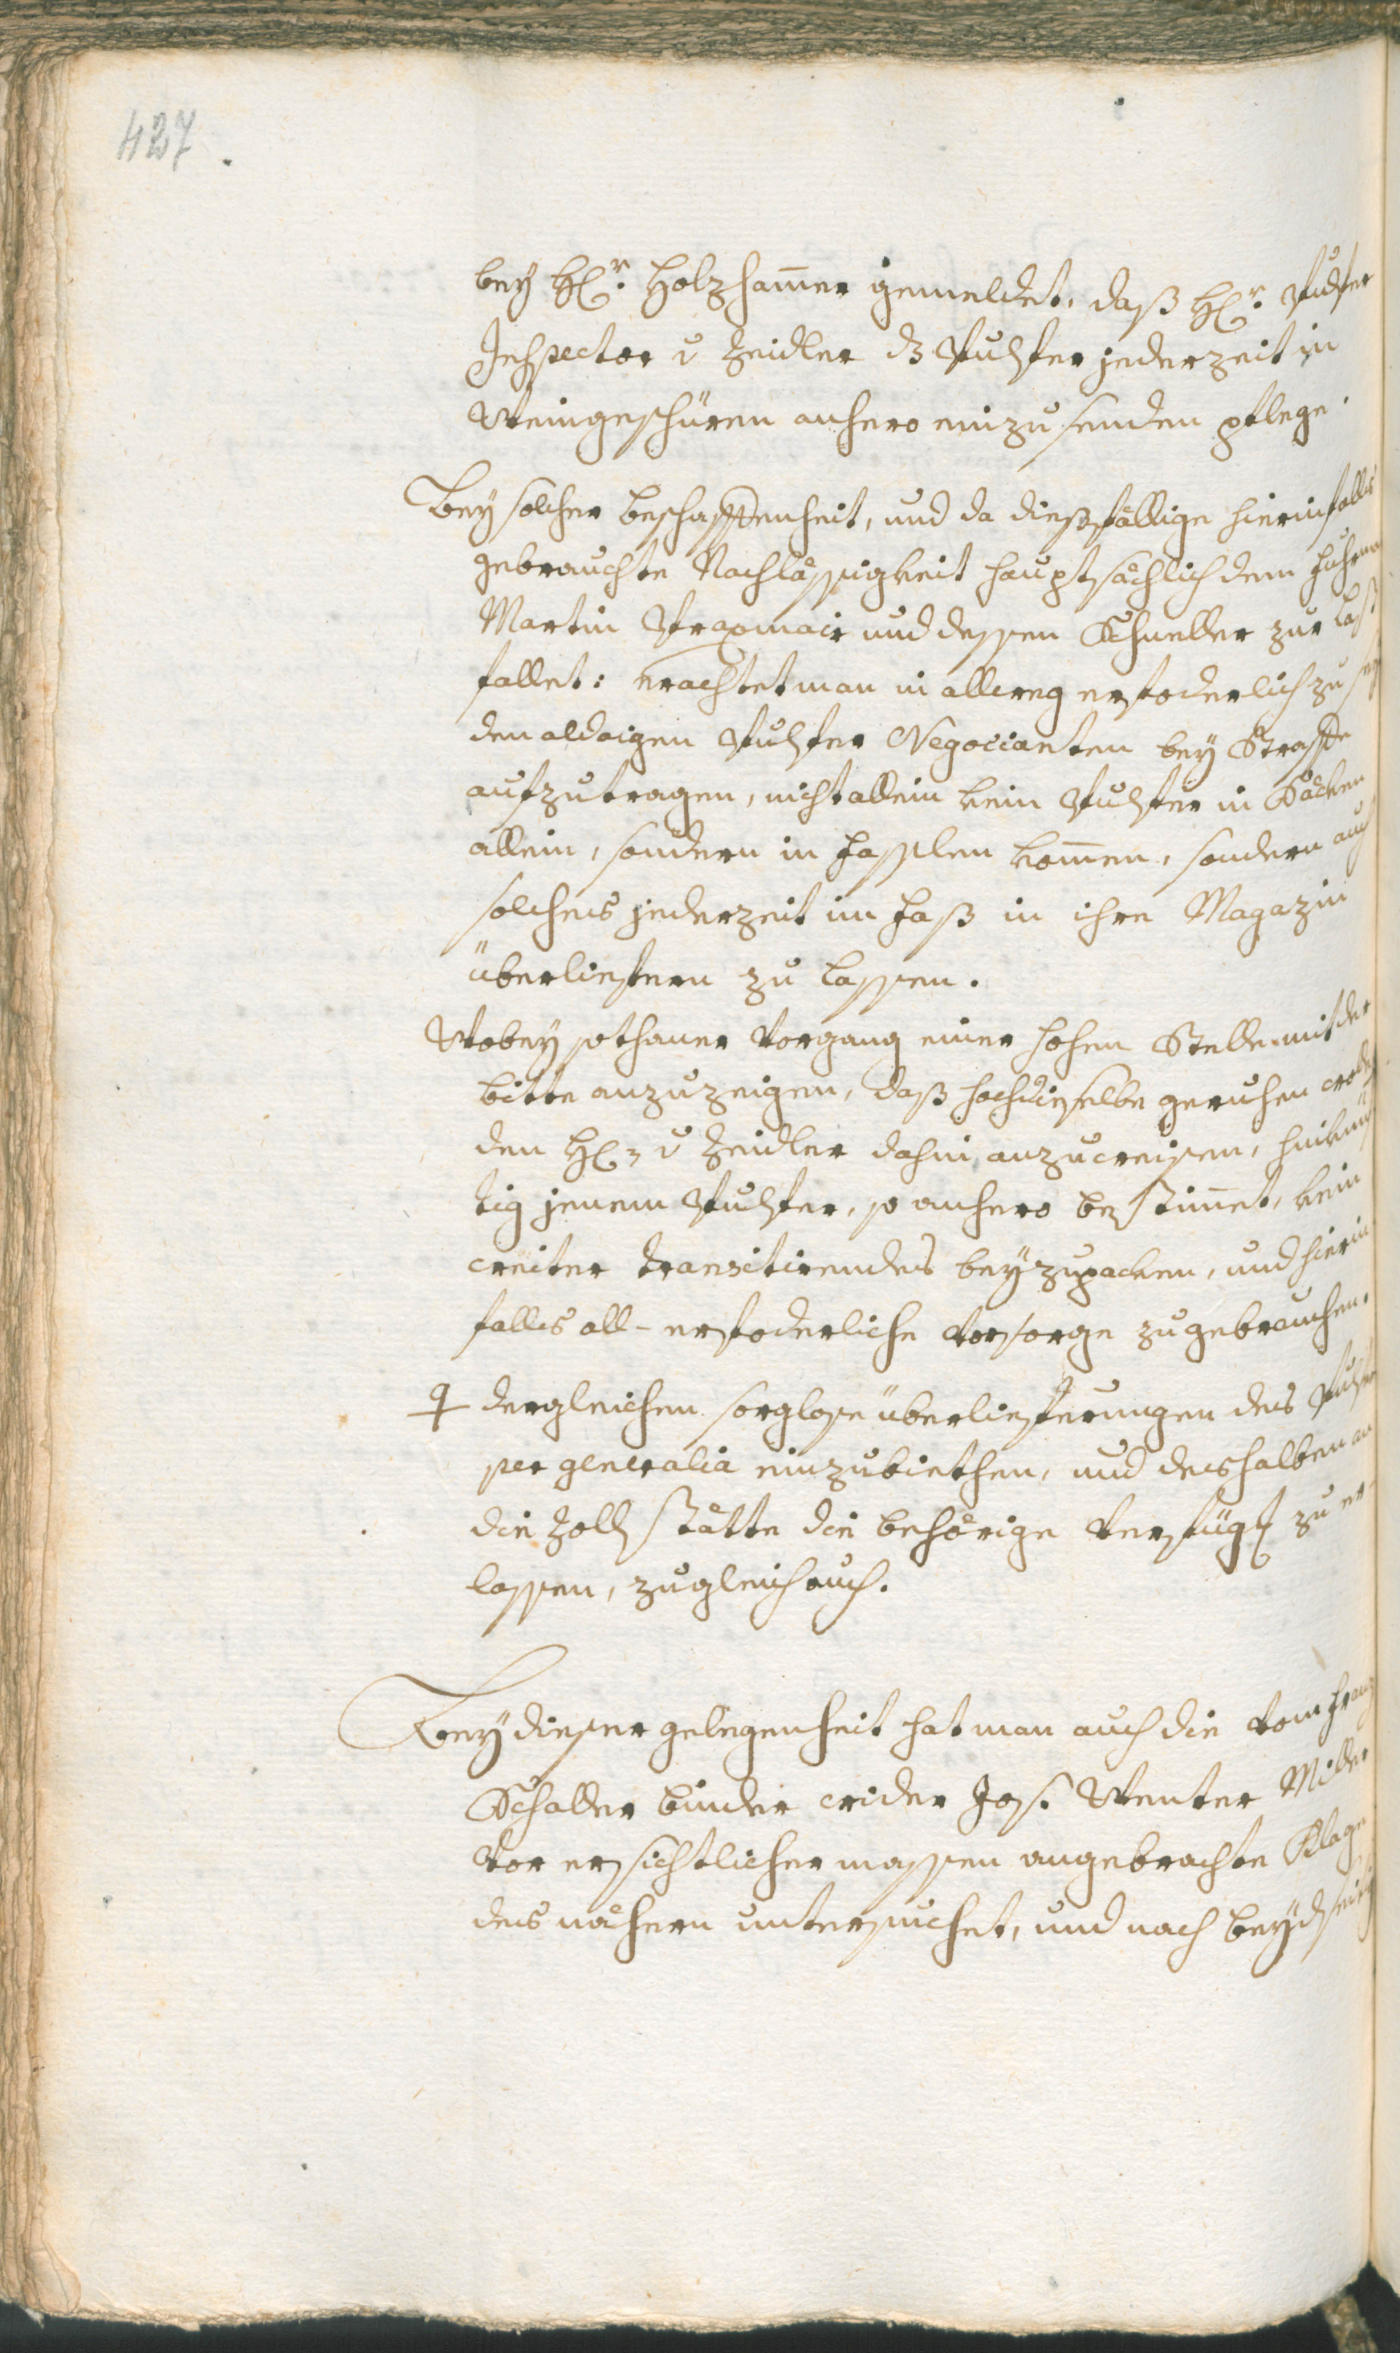 427.
bey H[err]: Holzhamer gemeldet, daß H[err]: Pulfer
Inspector v Zeidler dz Pulfer jederzeit in
Weingeschüren anhero einzusenden pflege.
Bey solcher beschaffenheit, und da dießfällige hierinfalls
gebrauchte Nachläßigkeit hauptsächlich dem
Martin Straxmair und dessen Schneller zur Last
fallet: erachtet man in allweg erfoderlich zu sey
den aldaigen Pulfer Negocianten bey Straffe
aufzutragen, nicht allein kein Pulfer in Säcken
allein, sondern in Fasslen komen, sondern auch
solches jederzeit im Faß in ihre Magazin
überliefern zu lassen.
Wobey sothaner Vorgang einer hohen Stelle mit der
bitte anzuzeigen, daß hochdieselbe geruhen
den H v Zeidler dahin anzuweisen, hinkünf
tig jenem Pulfer, so anhero bestimet, kein
weiter transitirendes beyzupacken, und hierin
falls all-erfoderliche Vorsorge zu gebrauchen.
dergleichen sorglose überlieferungen des Pulfer
per generalia einzubiethen, und deshalben an
die Zollstätte die behörige Verfüg zu er-
lassen, zugleich auch.
Bey dieser gelegenheit hat man auch die vom Franz
Schaller binder wider Jos. Wenter Miller
vor ersichtlicher massen angebrachte Klage
des nähern untersuchet, und nach beydseitig